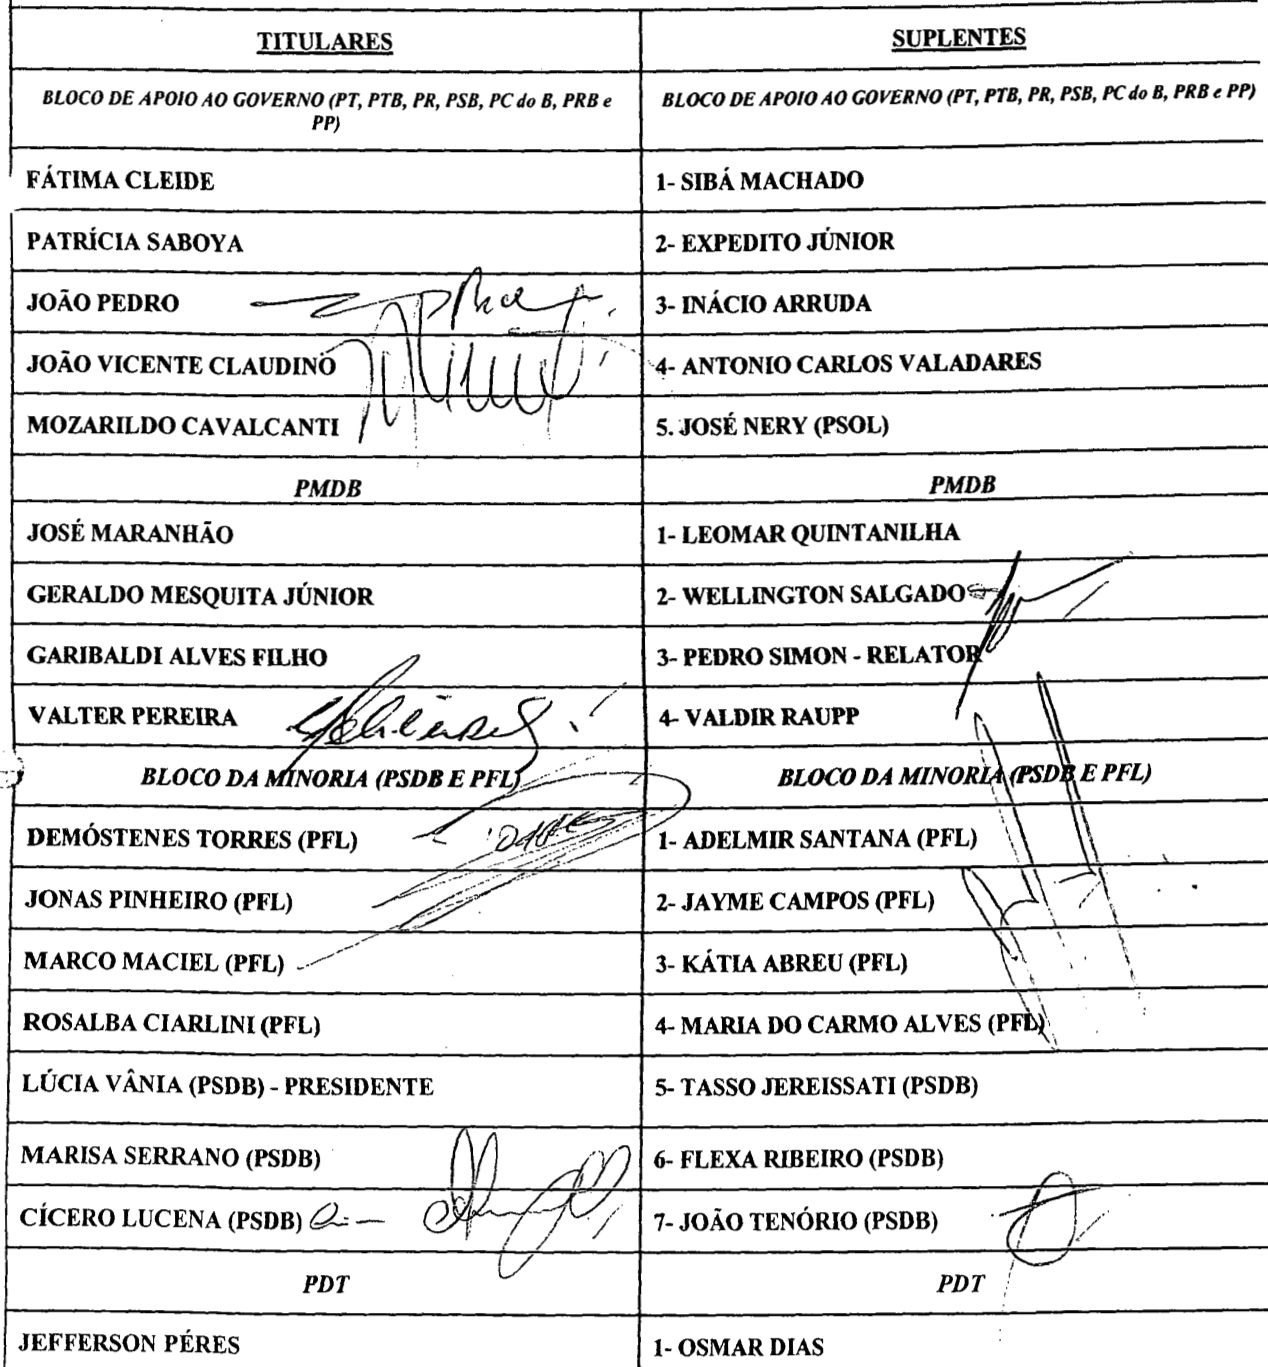 TITULARES
SUPLENTES
BLOCO DE APOIO AO GOVERNO (PT, PTB, PR, PSB, PC do B, PRB e
PP)
BLOCO DE APOIO AO GOVERNO (PT, PTB, PR, PSB, PC do B, PRB e PP)
FÁTIMA CLEIDE
1- SIBÁ MACHADO
PATRÍCIA SABOYA
2- EXPEDITO JÚNIOR
JOÃO PEDRO
3- INÁCIO ARRUDA
JOÃO VICENTE CLAUDINO
4- ANTONIO CARLOS VALADARES
MOZARILDO CAVALCANTI
5. JOSÉ NERY (PSOL)
PMDB
PMDB
JOSÉ MARANHÃO
1- LEOMAR QUINTANILHA
GERALDO MESQUITA JÚNIOR
2- WELLINGTON SALGADO
GARIBALDI ALVES FILHO
3- PEDRO SIMON - RELATOR
VALTER PEREIRA
4- VALDIR RAUPP
BLOCO DA MINORIA (PSDB E PFL)
BLOCO DA MINORIA (PSDB E PFL)
DEMÓSTENES TORRES (PFL)
1- ADELMIR SANTANA (PFL)
JONAS PINHEIRO (PFL)
2- JAYME CAMPOS (PFL)
MARCO MACIEL (PFL)
3- KÁTIA ABREU (PFL)
ROSALBA CIARLINI (PFL)
4- MARIA DO CARMO ALVES (PFL)
LÚCIA VÂNIA (PSDB) - PRESIDENTE
5- TASSO JEREISSATI (PSDB)
MARISA SERRANO (PSDB)
6- FLEXA RIBEIRO (PSDB)
CÍCERO LUCENA (PSDB)
7- JOÃO TENÓRIO (PSDB)
PDT
PDT
JEFFERSON PÉRES
1- OSMAR DIAS